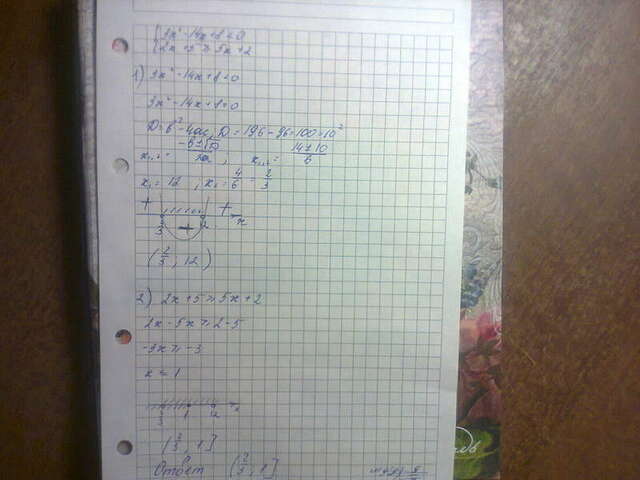 3x² - 14x + 8 < 0
2x + 5 ≥ 5x + 2
1) 3x² - 14x + 8 < 0
3x² - 14x + 8 = 0
D = b² - 4ac, D = 196 - 96 = 100 = 10²
x₁,₂ = (-b ± √D)/2a ; x₁,₂ = (14 ± 10)/6
x₁ = 12 , x₂ = 4/6 = 2/3
+ - + x
(2/3 ; 12)
2) 2x + 5 ≥ 5x + 2
2x - 5x ≥ 2 - 5
-3x ≥ -3
x ≤ 1
(2/3 , 1]
Ответ (2/3 , 1]